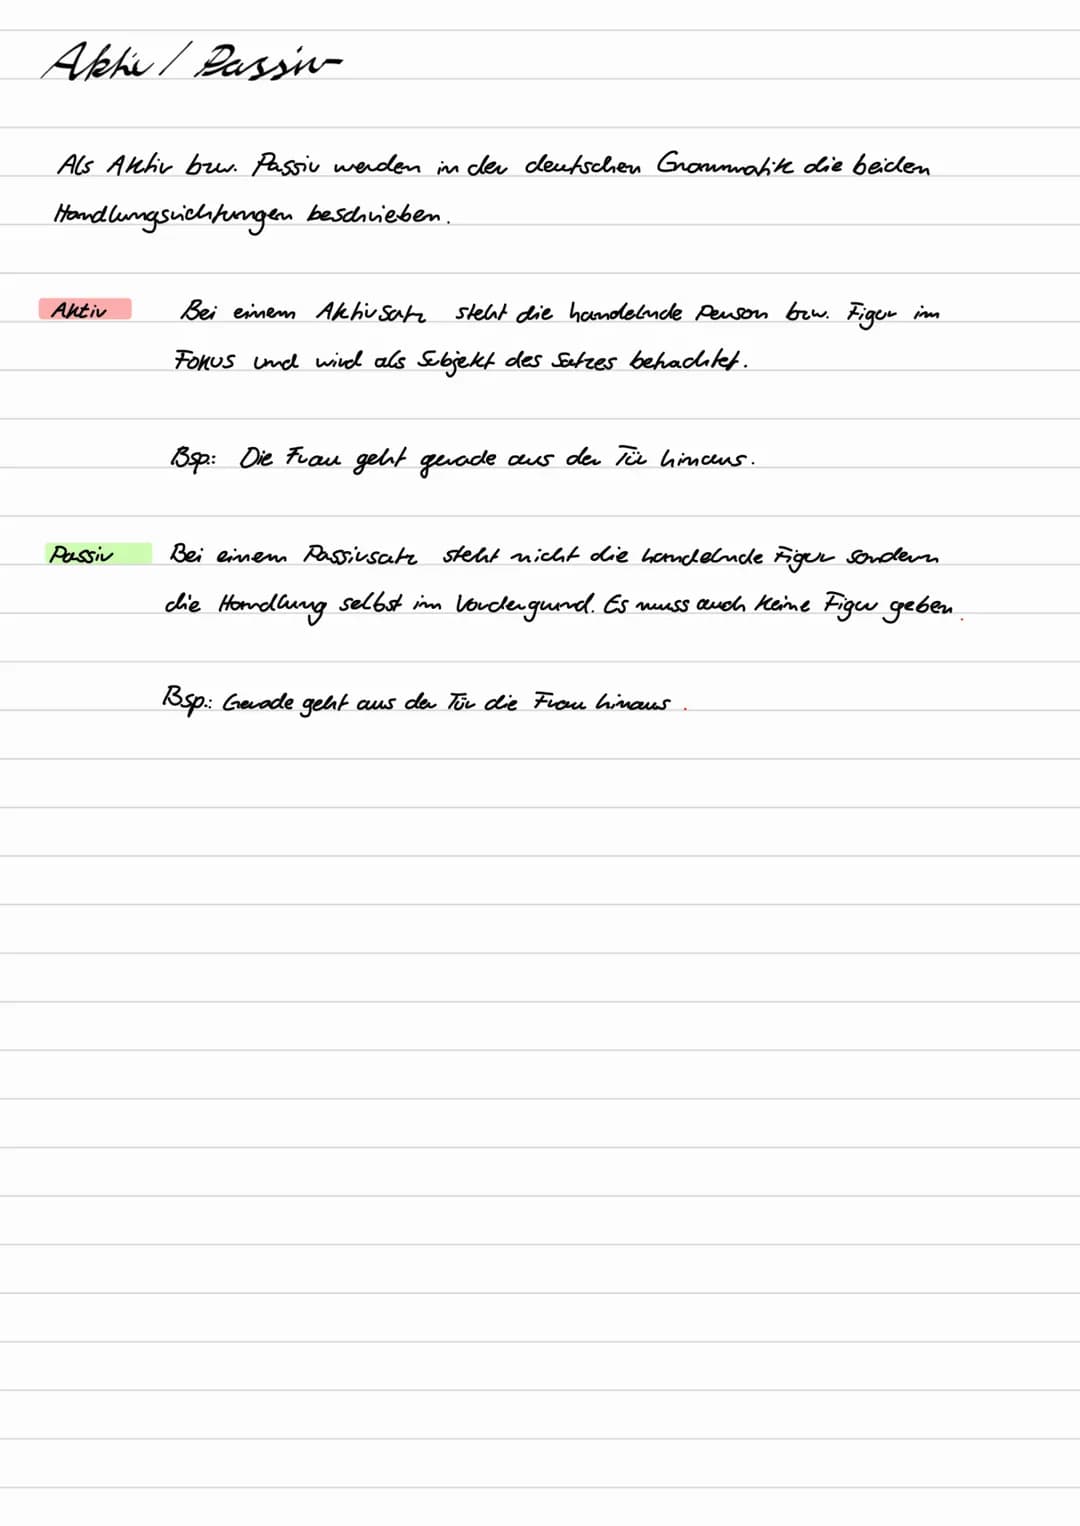 Aktiv / Passiv
Als Aktiv bzw. Passiv werden in der deutschen Grammatik die beiden
Handlungsrichtungen beschrieben.
Aktiv Bei einem Aktivsatz steht die handelnde Person bzw. Figur im
Fokus und wird als Subjekt des Satzes betrachtet.
Bsp.: Die Frau geht gerade aus der Tür hinaus.
Passiv Bei einem Passivsatz steht nicht die handelnde Figur sondern
die Handlung selbst im Vordergrund. Es muss auch keine Figur geben.
Bsp.: Gerade geht aus der Tür die Frau hinaus.